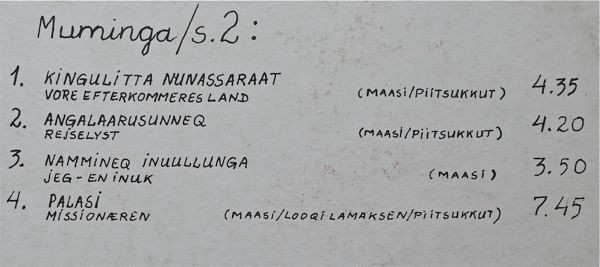 Muminga/s.2:
1. KINGULITTA NUNASSARAAT (MAASI/PIITSUKKUT) 4.35
VORE EFTERKOMMERES LAND
2. ANGALAARUSUNNEQ (MAASI/PIITSUKKUT) 4.20
REJSELYST
3. NAMMINEQ INUULLUNGA (MAASI) 3.50
JEG - EN INUK
4. PALASI (MAASI/LOOQI LAMAKSEN/PIITSUKKUT) 7.45
MISSIONÆREN